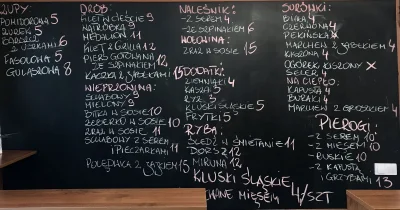 ZUPY:
POMIDOROWA 5
ŻUREK 5
BARSZCZ
Z USZKAMI 6
FASOLOWA 5
GULASZOWA 8
DRÓB:
FILET W CIEŚCIE 9
WĄTRÓBKA 9
MEDALION 11
FILET Z GRILLA 12
PIERŚ GOTOWANA
ZE SZPINAKIEM
KACZKA Z JABŁKAMI 15
WIEPRZOWINA:
SCHABOWY 9
MIELONY 9
BITKA W SOSIE 10
ŻEBERKO W SOSIE 10
ZRAZ W SOSIE 11
SCHABOWY Z SEREM
I PIECZARKAMI 11
POLĘDWICA Z 15
NALEŚNIK:
-Z SEREM 4
-ZE SZPINAKIEM 6
WOŁOWINA:
ZRAZ W SOSIE 15
DODATKI:
ZIEMNIAKI 4
KASZA 5
RYŻ 5
KLUSKI ŚLĄSKIE 5
FRYTKI 5
RYBA:
ŚLEDŹ W ŚMIETANIE 11
DORSZ 12
MIRUNA 12
KLUSKI ŚLĄSKIE
MIĘSEM 4/SZT
SURÓWKI:
BIAŁA 4
CZERWONA 4
PEKIŃSKA X
MARCHEW Z JABŁKIEM 4
KISZONA 4
OGÓREK KISZONY X
SELER 4
NA CIEPŁO:
KAPUSTA 4
BURAKI 4
MARCHEW Z GROSZKIEM 4
PIEROGI:
-Z SEREM 10
-Z MIĘSEM 10
-RUSKIE 10
-Z KAPUSTĄ
I GRZYBAMI 13